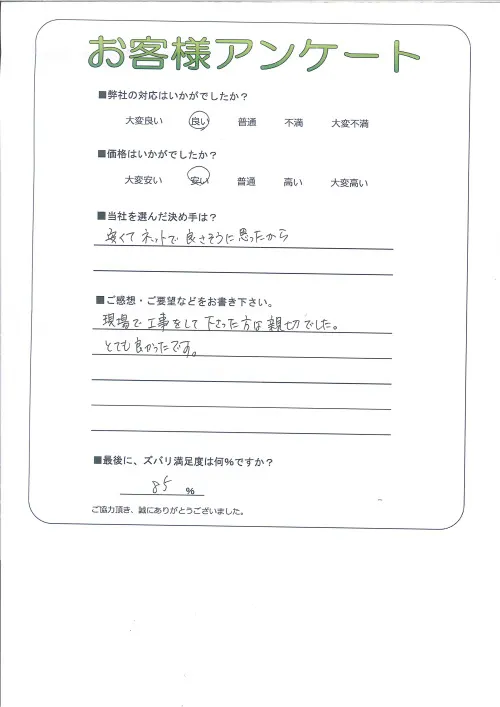 お客様アンケート
■弊社の対応はいかがでしたか？
大変良い 良い 普通 不満 大変不満
■価格はいかがでしたか？
大変安い 安い 普通 高い 大変高い
■当社を選んだ決め手は？
安くてネットで良さそうに思ったから
■ご感想・ご要望などをお書き下さい。
現場で工事をして下さった方は親切でした。
とても良かったです。
■最後に、ズバリ満足度は何％ですか？
85 %
ご協力頂き、誠にありがとうございました。